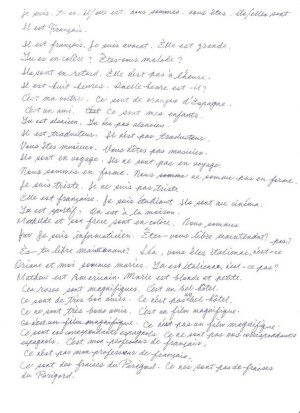 je suis. tu es. il/elle est. nous sommes. vous êtes. ils/elles sont
Il est français.
Il est français. Je suis avocat. Elle est grande.
Tu es en colère? Êtes-vous malade?
Ils sont en retard. Elle n'est pas à l'heure.
Il est huit heures. Quelle heure est-il?
C'est ma voiture. Ce sont de oranges d'Espagne.
C'est un ami. Ce sont mes enfants.
Tu est alsacien. Tu n'es pas alsacien.
Il est traducteur. Il n'est pas traducteur.
Vous êtes musicien. Vous n'êtes pas musicien.
Ils sont en voyage. Ils ne sont pas en voyage.
Nous sommes en forme. Nous ne sommes pas en forme.
Je suis triste. Je ne suis pas triste.
Elle est française. Je suis étudiant. Ils sont au cinéma.
Tu est sportif. On est à la maison.
Mathilde et son frère sont en colère. Nous sommes
Je suis informaticien. Êtes-vous libre maintenant?
Es-tu libre maintenant? Léa, vous êtes italienne, n'est-ce pas?
et moi sommes mariés. Tu est italienne, n'est-ce pas?
Mathew est Américain. Marie est blonde et petite.
Ces roses sont magnifiques. C'est un bel hôtel.
Ce sont de très bon amis. Ce n'est pas bel hôtel.
Ce ne sont très bons amis. C'est un film magnifique.
Ce n'est pas un film magnifique.
Ce sont correspondants espagnols. Ce ne sont pas nos correspondants
espagnols. C'est mon professeur de français.
Ce n'est pas mon professeur de français.
Ce sont des fraises du Périgord. Ce ne sont pas de fraises
du Périgord.